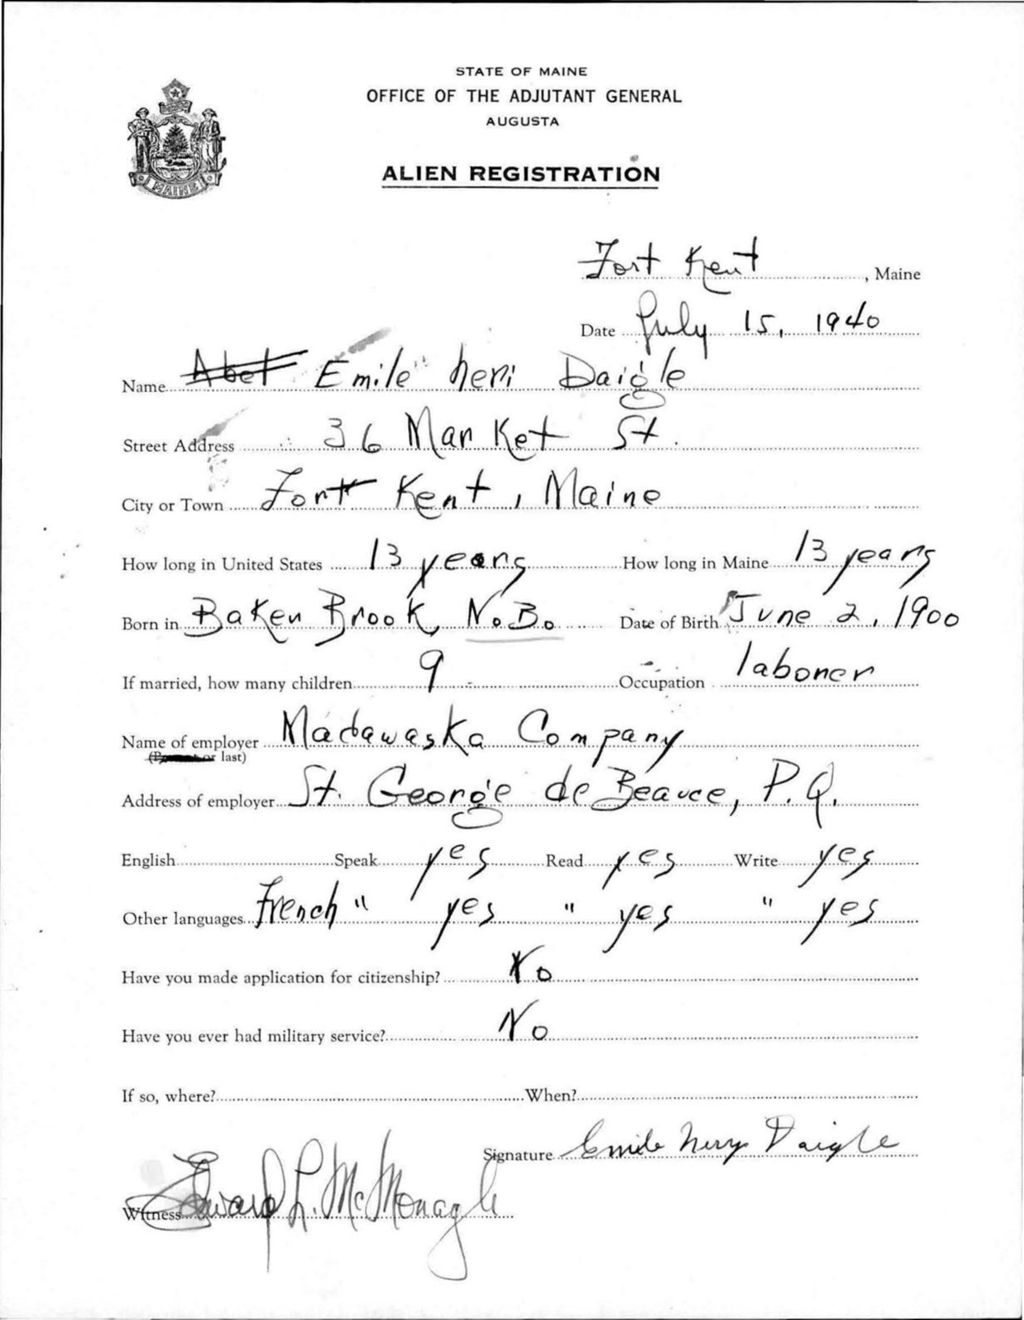 STATE OF MAINE
OFFICE OF THE ADJUTANT GENERAL
AUGUSTA
ALIEN REGISTRATION
MAINE
Fort Kent, Maine
Date July 15, 1940
Name Abel Emile neri Daigle
Street Address 36 Market St.
City or Town Fort Kent, Maine
How long in United States 13 years How long in Maine 13 years
Born in Baker Brook, N.B. Date of Birth June 2, 1900
If married, how many children 9 Occupation laborer
Name of employer Madawaska Company
or last)
Address of employer St. George de Beauce, P.Q.
English Speak yes Read yes Write yes
Other languages French " yes " yes " yes
Have you made application for citizenship? No
Have you ever had military service? No
If so, where? When?
Signature Emile Nery Daigle
Witness Edward L. McMonagle